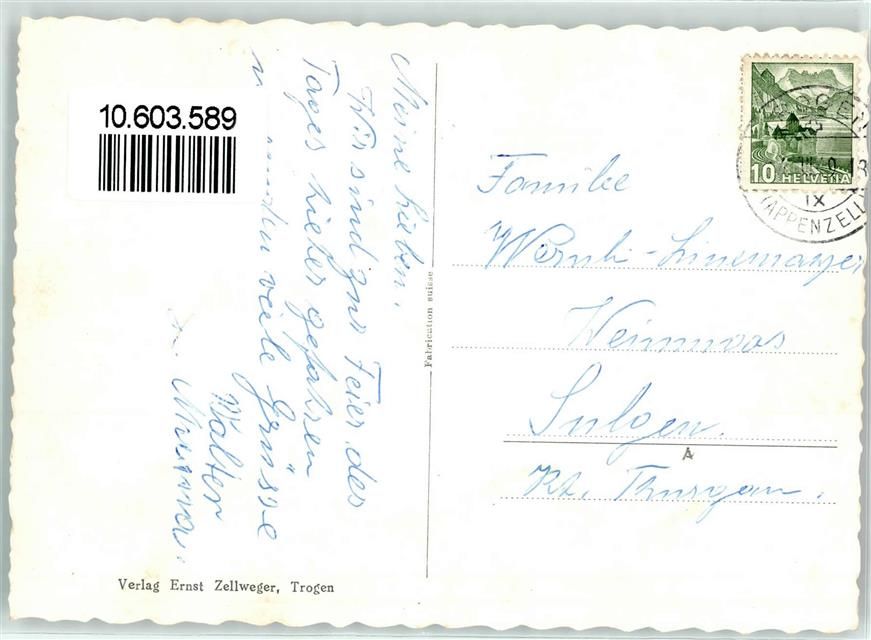 10.603.589
Meine Lieben.
Wir sind zur Feier des
Tages hieher gefahren
u. senden viele Grüsse
Walter
Mamma.
Fabrication suisse
Verlag Ernst Zellweger, Trogen
10 HELVETIA
TROGEN
IX
(APPENZELL)
Familie
Wernli-Linemayer
Sulgen.
A
Kt. Thurgau.